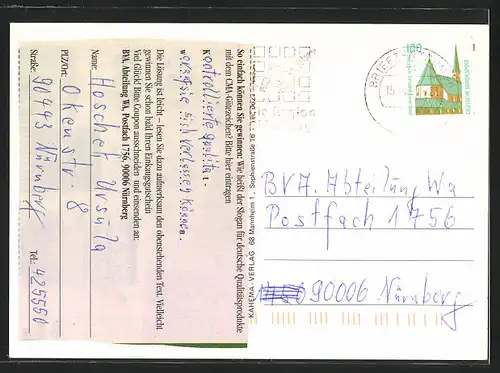 So einfach können Sie gewinnen: Wie heißt der Slogan für deutsche Qualitätsprodukte
mit dem CMA-Gütezeichen? Bitte hier eintragen
Kontrollierte qualität.
worauf sie sich verlassen können.
Die Lösung ist leicht – lesen Sie dazu aufmerksam den obenstehenden Text. Vielleicht
gewinnen Sie schon bald Ihren Einkaufsgutschein
Viel Glück! Bitte Coupon ausschneiden und einsenden an:
BVA, Abteilung WA, Postfach 1756, 90006 Nürnberg
Name: Hoschet, Ursula
Okenstr. 8
PLZ/Ort:
90443 Nürnberg
Straße:
Tel.: 425550
KAHEMA VERLAG
100
1
BRIEFZ
BVA. Abteilung Wa
Postfach 1756
90006 Nürnberg